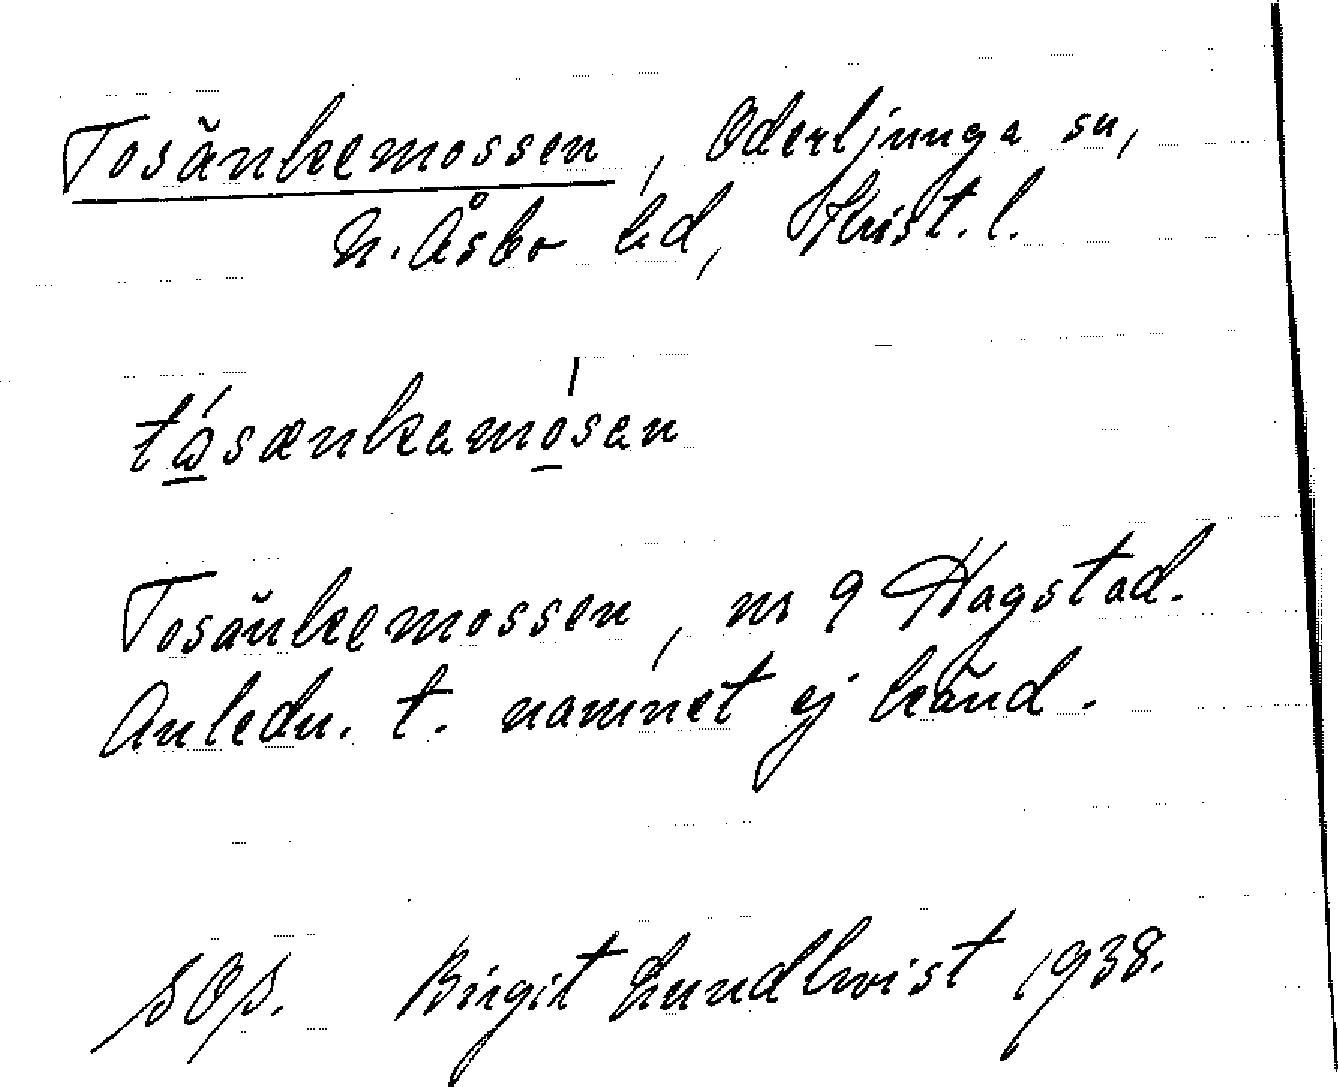 Tosänkemossen, Oderljunga sn,
N. Åsbo hd, Krist. l.
tósænkamósan
Tosänkemossen, nr 9 Hagstad.
Anledn. t. namnet ej känd.
sOp. Birgit Lundkvist 1938.